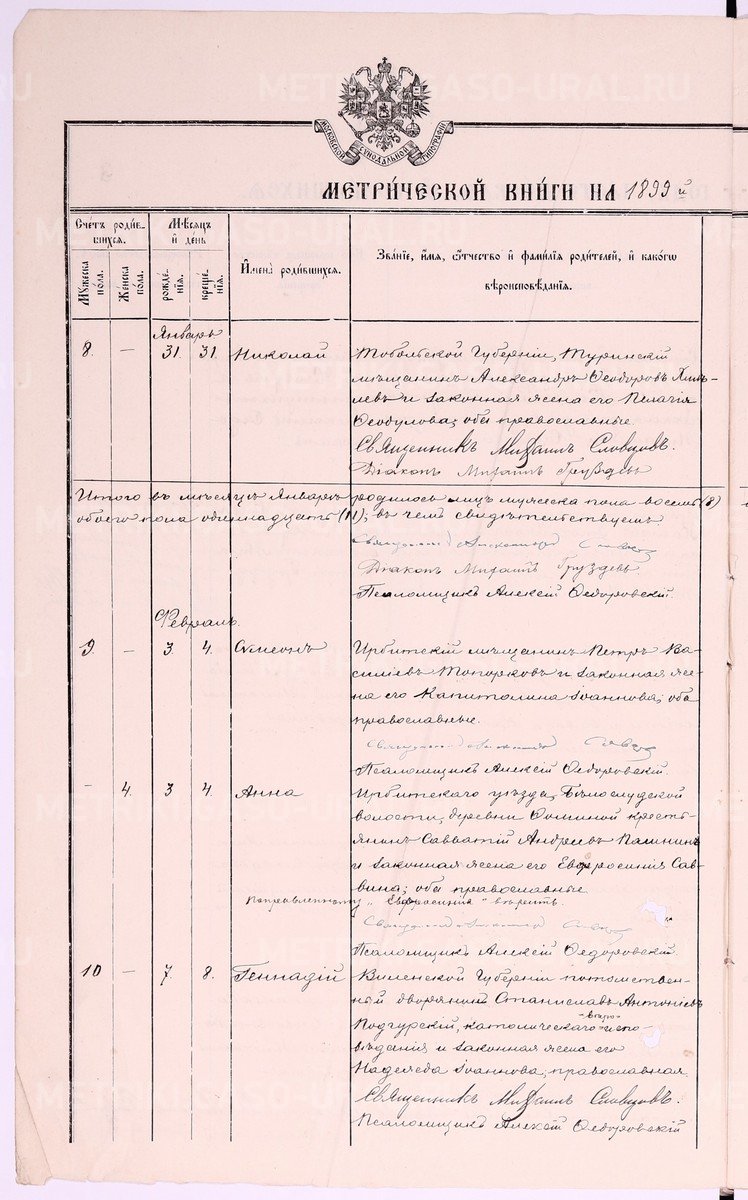 МОСКОВСКОЙ СѴНОДАЛЬНОЙ ТИПОГРАФІИ
МЕТРИ́ЧЕСКОЙ КНИ́ГИ НА 1899 й
Сче́тъ роди́в-
шихся.
Мѣ́сяцъ
и҆ де́нь
Му́жеска
по́ла.
Же́нска
по́ла.
рожде́-
нїѧ.
креще́-
нїѧ.
И҆мена̀ роди́вшихся.
Зва́нїе, и҆́мѧ, ѻ҆́тчество и҆ фами́лїѧ роди́телей, и҆ како́гѡ
вѣроисповѣ́данїѧ.
Январь
8. — 31. 31. Николай Тобольской Губерніи, Туринскій
мѣщанинъ Александръ Ѳеодоровъ
левъ и законная жена его Пелагія
Ѳеодулова; оба православные.
Священникъ Михаилъ Словцовъ.
Діаконъ Михаилъ Груздевъ
Итого въ мѣсяцѣ Январѣ родилось лицъ мужеска пола восемь (8)
обоего пола одиннадцать (11); въ чемъ свидѣтельствуемъ
Священникъ Александръ
Діаконъ Михаилъ Груздевъ
Псаломщикъ Алексій Ѳедоровскій.
Февраль.
9. — 3. 4. Симеонъ Ирбитскій мѣщанинъ Петръ Ва-
силіевъ Топорковъ и законная же-
на его Капитолина Іоаннова; оба
православные.
Священникъ Александръ
Псаломщикъ Алексій Ѳедоровскій.
— 4. 3 4. Анна Ирбитскаго уѣзда, Бѣлослудской
волости, деревни Ѳоминой кресть-
янинъ Савватій Андреевъ Пашнинъ
и законная жена его Евфросинія Сав-
вина; оба православные
Поправленному „Евфросинія" вѣрить.
Священникъ Александръ
Псаломщикъ Алексій Ѳедоровскій.
10 — 7. 8. Геннадій Виленской Губерніи потомствен-
ный дворянинъ Станиславъ Антоніевъ
Подгурскій, католическаго -вѣро- испо-
вѣданія и законная жена его
Надежда Іоаннова, православная
Священникъ Михаилъ Словцовъ.
Псаломщикъ Алексій Ѳедоровскій